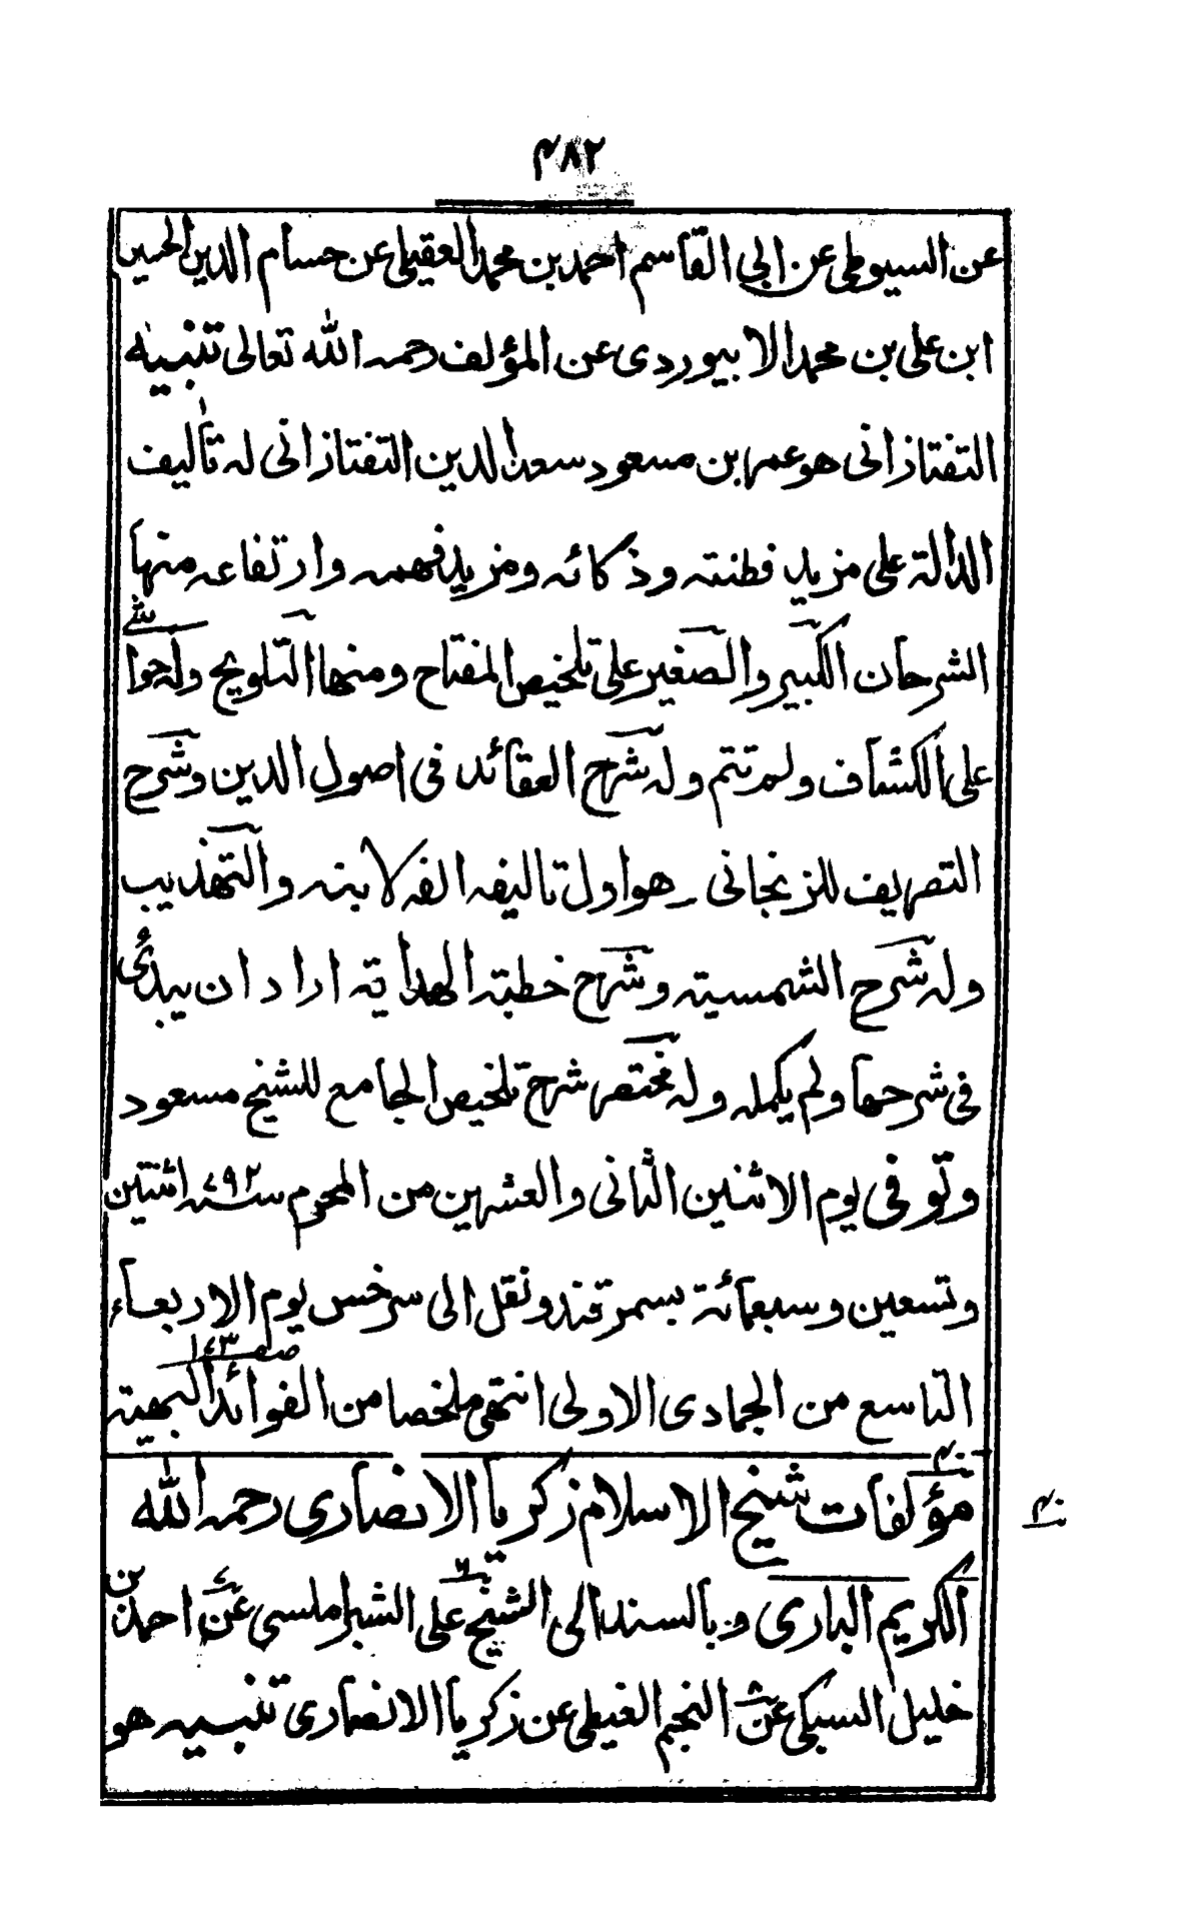 ۴۸۲
عن السيوطى عن ابى القاسم احمد بن محمد العقيلى عن حسام الدين الحسين
ابن على بن محمد الابيوردى عن المؤلف رحمه الله تعالى تنبيه
التفتازانى هو عمر بن مسعود سعد الدين التفتازانى له تأليف
الدالة على مزيد فطنته وذكائه ومزيد فهمه وارتفاعه منها
الشرحان الكبير والصغير على تلخيص المفتاح ومنها التلويح وله حواشى
على الكشاف ولم تتم وله شرح العقائد فى اصول الدين وشرح
التصريف للزنجانى وهو اول تاليفه الفه لابنه والتهذيب
وله شرح الشمسية وشرح خطبته الهداية اراد ان يبدئ
فى شرحها ولم يكمله وله مختصر شرح تلخيص الجامع للشيخ مسعود
وتوفى يوم الاثنين الثانى والعشرين من المحرم سنه ٧٩٢ اثنتين
وتسعين وسبعمائة بسمرقند ونقل الى سرخس يوم الاربعاء
التاسع من الجمادى الاولى انتهى ملخصا من الفوائد البهية صفه ١٤٣
۴۰ مؤلفات شيخ الاسلام زكريا الانصارى رحمه الله
۴۰
الكريم البارى وبالسند الى الشيخ على الشبراملسى عن احمد بن
خليل السبكى عن النجم الغيطى عن زكريا الانصارى تنبيه هو